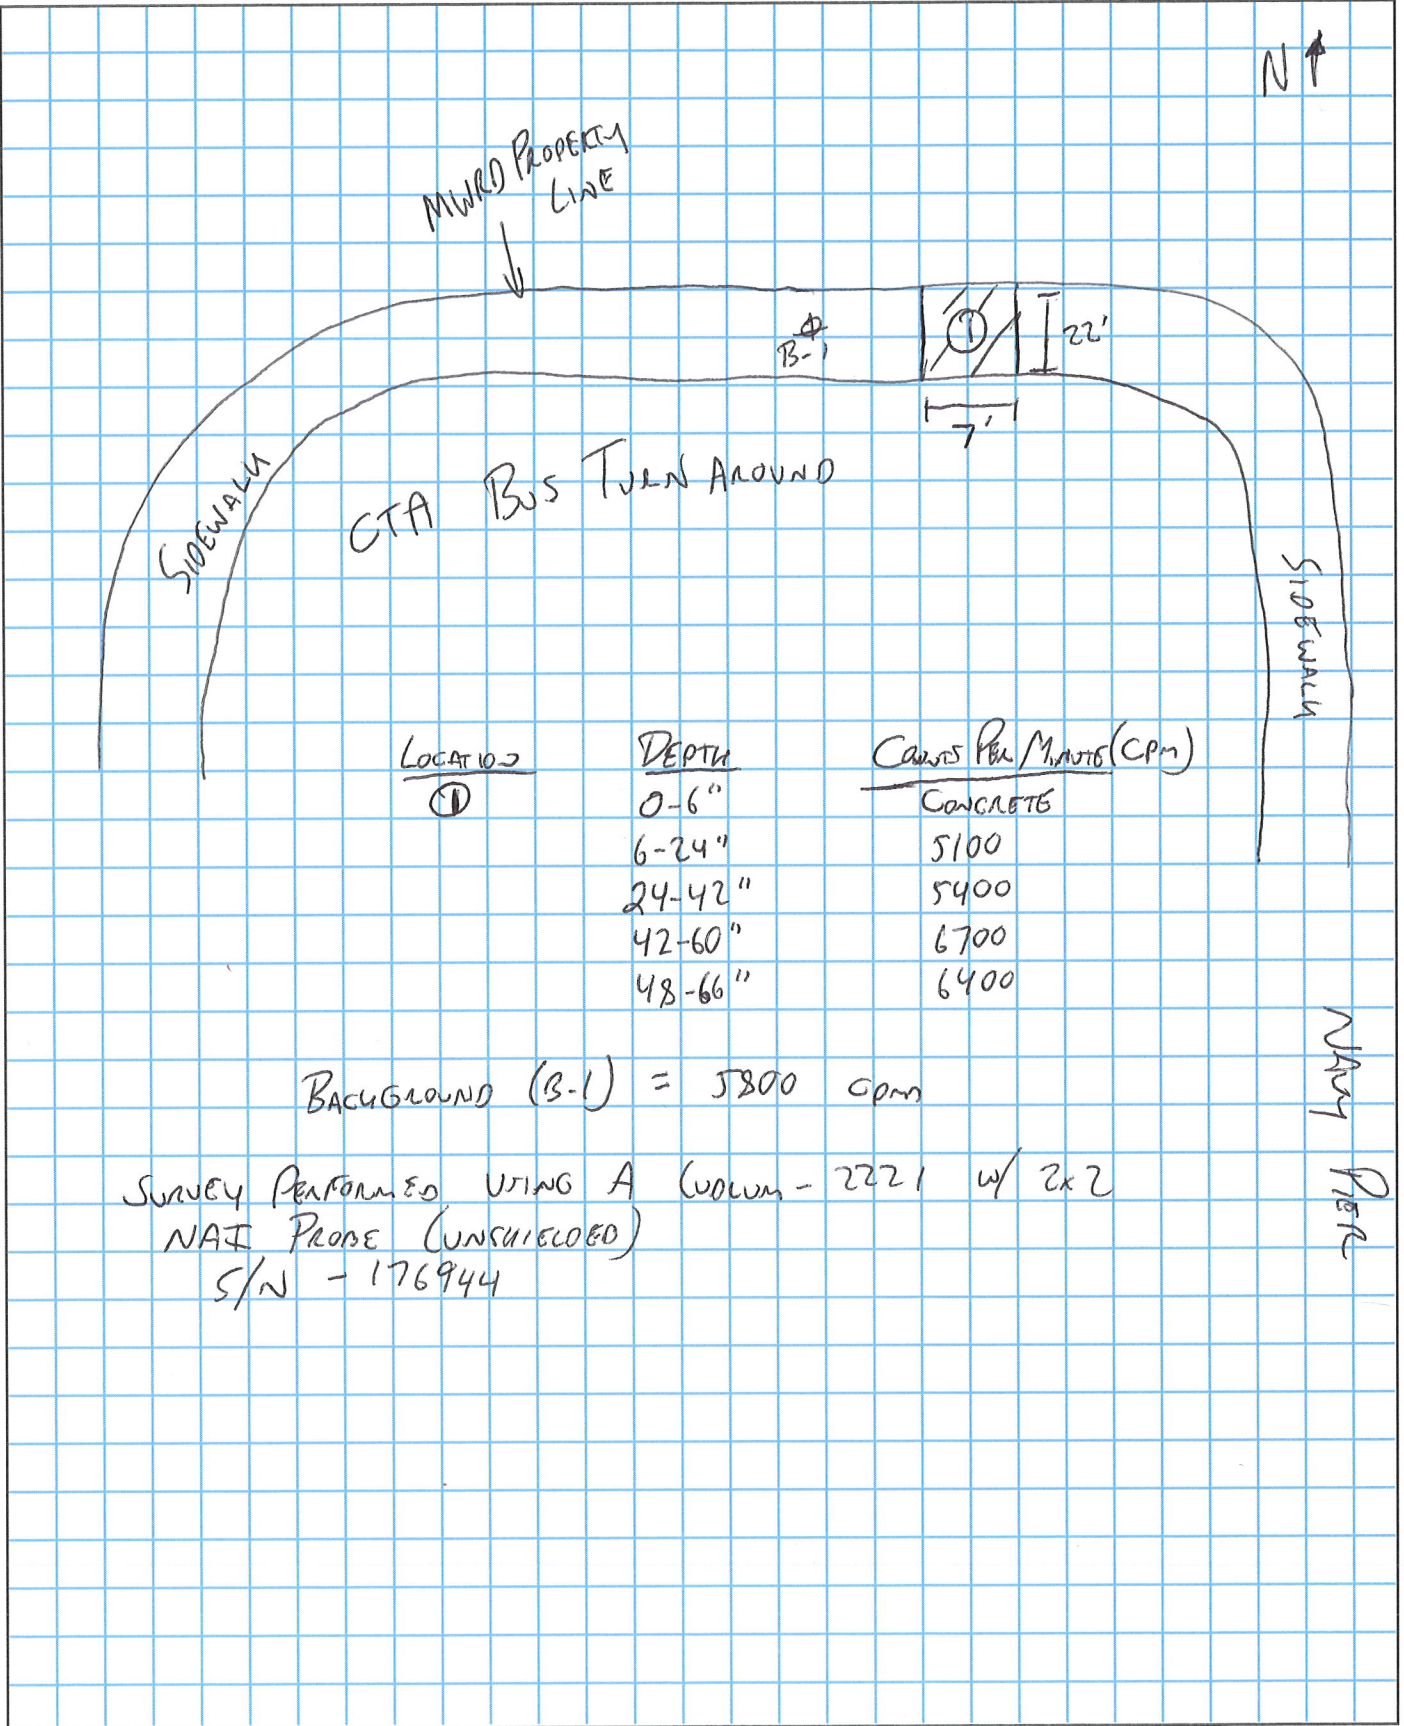 N
MWRD PROPERTY
LINE
B-1
1
22'
7'
SIDEWALK
CTA BUS TURN AROUND
SIDEWALK
LOCATION DEPTH COUNTS PER MINUTE (CPM)
1 0-6" CONCRETE
6-24" 5100
24-42" 5400
42-60" 6700
48-66" 6400
NAVY PIER
BACKGROUND (B-1) = 5800 cpm
SURVEY PERFORMED USING A LUDLUM - 2221 w/ 2x2
NAI PROBE (UNSHIELDED)
S/N - 176944